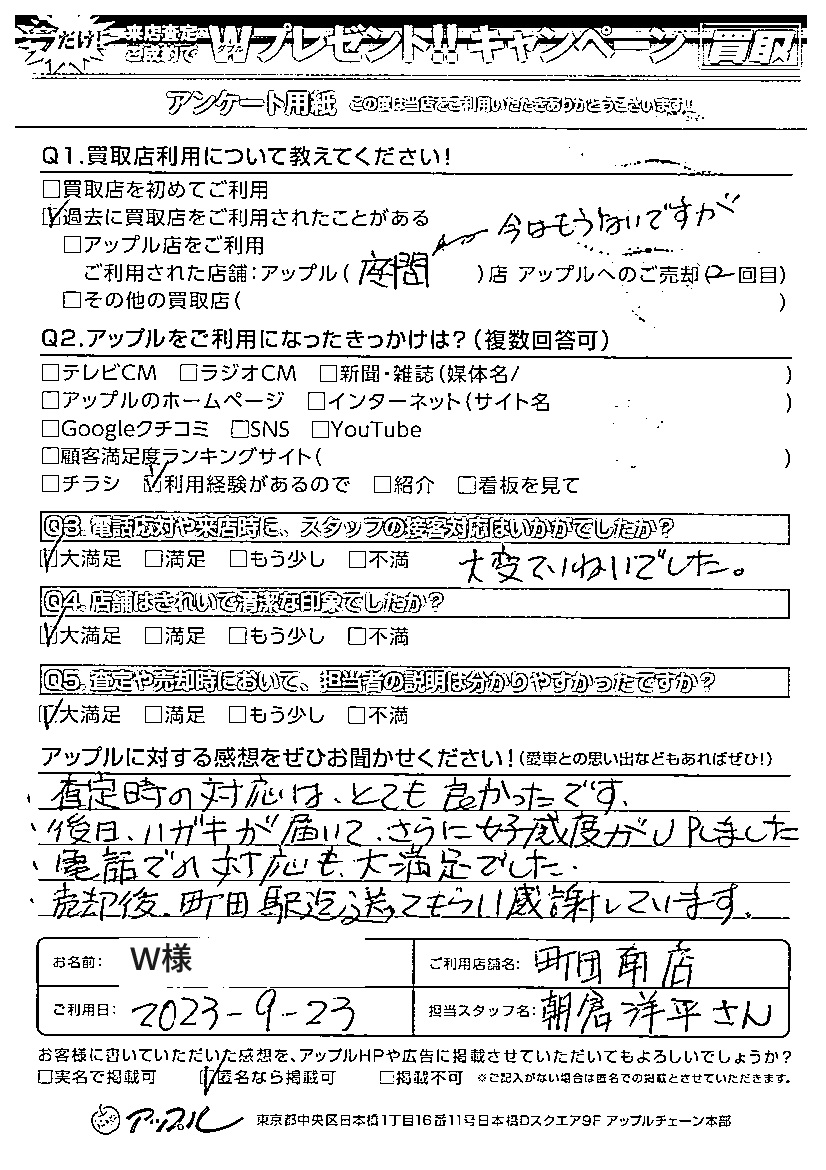 今だけ! 来店査定・ご成約で Wプレゼント!!キャンペーン 買取
アンケート用紙 この度は当店をご利用いただきありがとうございます!!
Q1.買取店利用について教えてください!
□買取店を初めてご利用
☑過去に買取店をご利用されたことがある
□アップル店をご利用 ← 今はもうないですが
ご利用された店舗:アップル( 座間 )店 アップルへのご売却(2回目)
□その他の買取店( )
Q2.アップルをご利用になったきっかけは?(複数回答可)
□テレビCM □ラジオCM □新聞・雑誌(媒体名/ )
□アップルのホームページ □インターネット(サイト名 )
□Googleクチコミ □SNS □YouTube
□顧客満足度ランキングサイト( )
□チラシ ☑利用経験があるので □紹介 □看板を見て
Q3.電話応対や来店時に、スタッフの接客対応はいかがでしたか?
☑大満足 □満足 □もう少し □不満 大変ていねいでした。
Q4.店舗はきれいで清潔な印象でしたか?
☑大満足 □満足 □もう少し □不満
Q5.査定や売却時において、担当者の説明は分かりやすかったですか?
☑大満足 □満足 □もう少し □不満
アップルに対する感想をぜひお聞かせください!(愛車との思い出などもあればぜひ!)
・査定時の対応は、とても良かったです。
・後日、ハガキが届いて、さらに好感度がUPしました
・電話での対応も、大満足でした.
・売却後、町田駅迄送ってもらい感謝しています。
お名前: W様 ご利用店舗名: 町田南店
ご利用日: 2023-9-23 担当スタッフ名: 朝倉洋平さん
お客様に書いていただいた感想を、アップルHPや広告に掲載させていただいてもよろしいでしょうか?
□実名で掲載可 ☑匿名なら掲載可 □掲載不可 ※ご記入がない場合は匿名での掲載とさせていただきます。
アップル 東京都中央区日本橋1丁目16番11号日本橋Dスクエア9F アップルチェーン本部